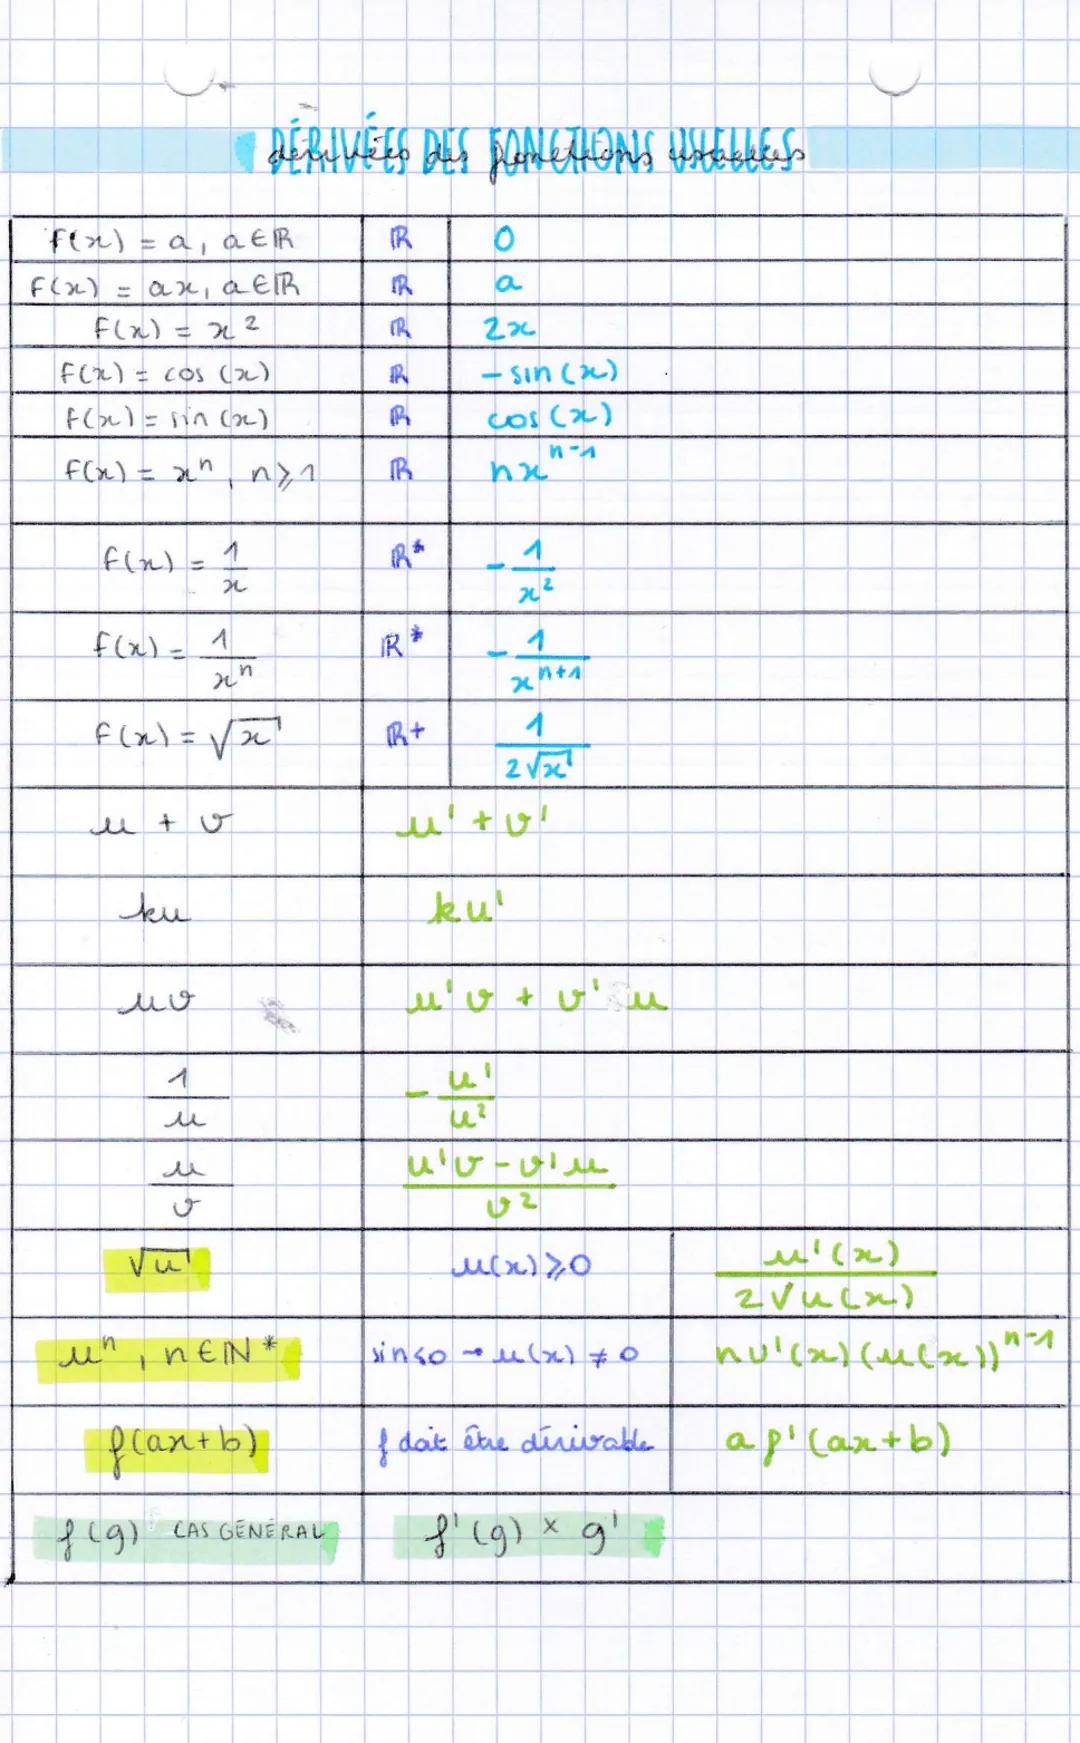 DÉRIVÉES DES FONCTIONS USUELLES
dérivées des fonctions usuelles
f(x) = a, a∈ℝ ℝ 0
f(x) = ax, a∈ℝ ℝ a
f(x) = x² ℝ 2x
f(x) = cos (x) ℝ - sin (x)
f(x) = sin (x) ℝ cos (x)
f(x) = xⁿ, n⩾1 ℝ nxⁿ⁻¹
f(x) = 1/x ℝ* - 1/x²
f(x) = 1/xⁿ ℝ* - 1/xⁿ⁺¹
f(x) = √x ℝ+ 1/(2√x)
u + v u' + v'
ku ku'
uv u'v + v'u
1/u - u'/u²
u/v (u'v - v'u)/v²
√u u(x)⩾0 u'(x)/(2√u(x))
uⁿ, n∈ℕ* si n≤0 → u(x) ≠ 0 nu'(x)(u(x))ⁿ⁻¹
f(ax+b) f doit être dérivable a f'(ax+b)
f(g) CAS GÉNÉRAL f'(g) × g'